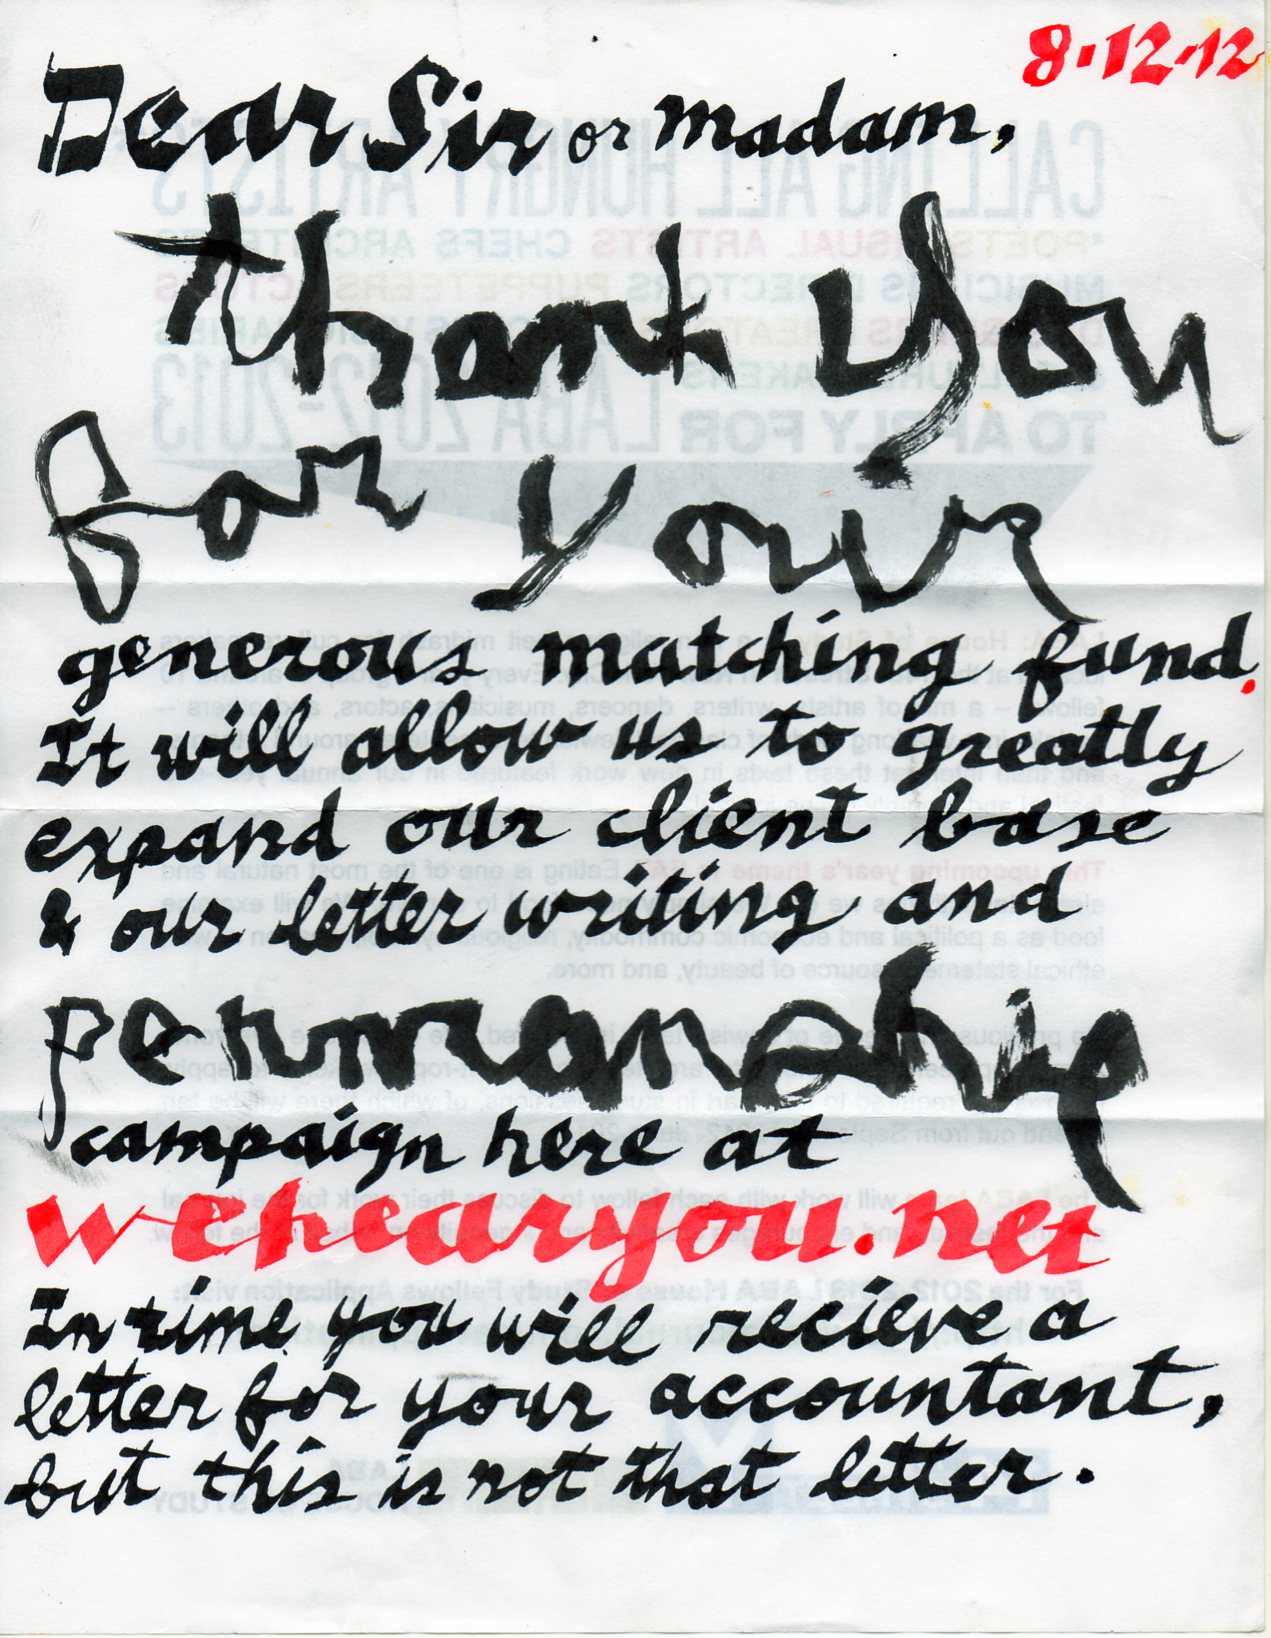 8·12·12
Dear Sir or Madam,
Thank You
for your
generous matching fund.
It will allow us to greatly
expand our client base
& our letter writing and
penmanship
campaign here at
wehearyou.net
In time you will recieve a
letter for your accountant,
but this is not that letter.